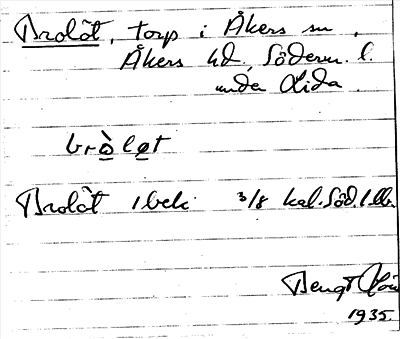 Brolöt, torp i Åkers sn,
Åkers hd, Söderm. l.
under Lida.
bròlǫt
Brolöt 1 bek 3/8 kal. Söd. l.
Bengt
1935